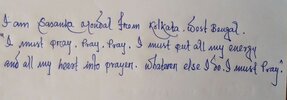 I am Sasanka Mondal from Kolkata. West Bengal.
"I must pray. Pray. Pray. I must put all my energy
and all my heart into prayer. Whatever else I do. I must Pray".